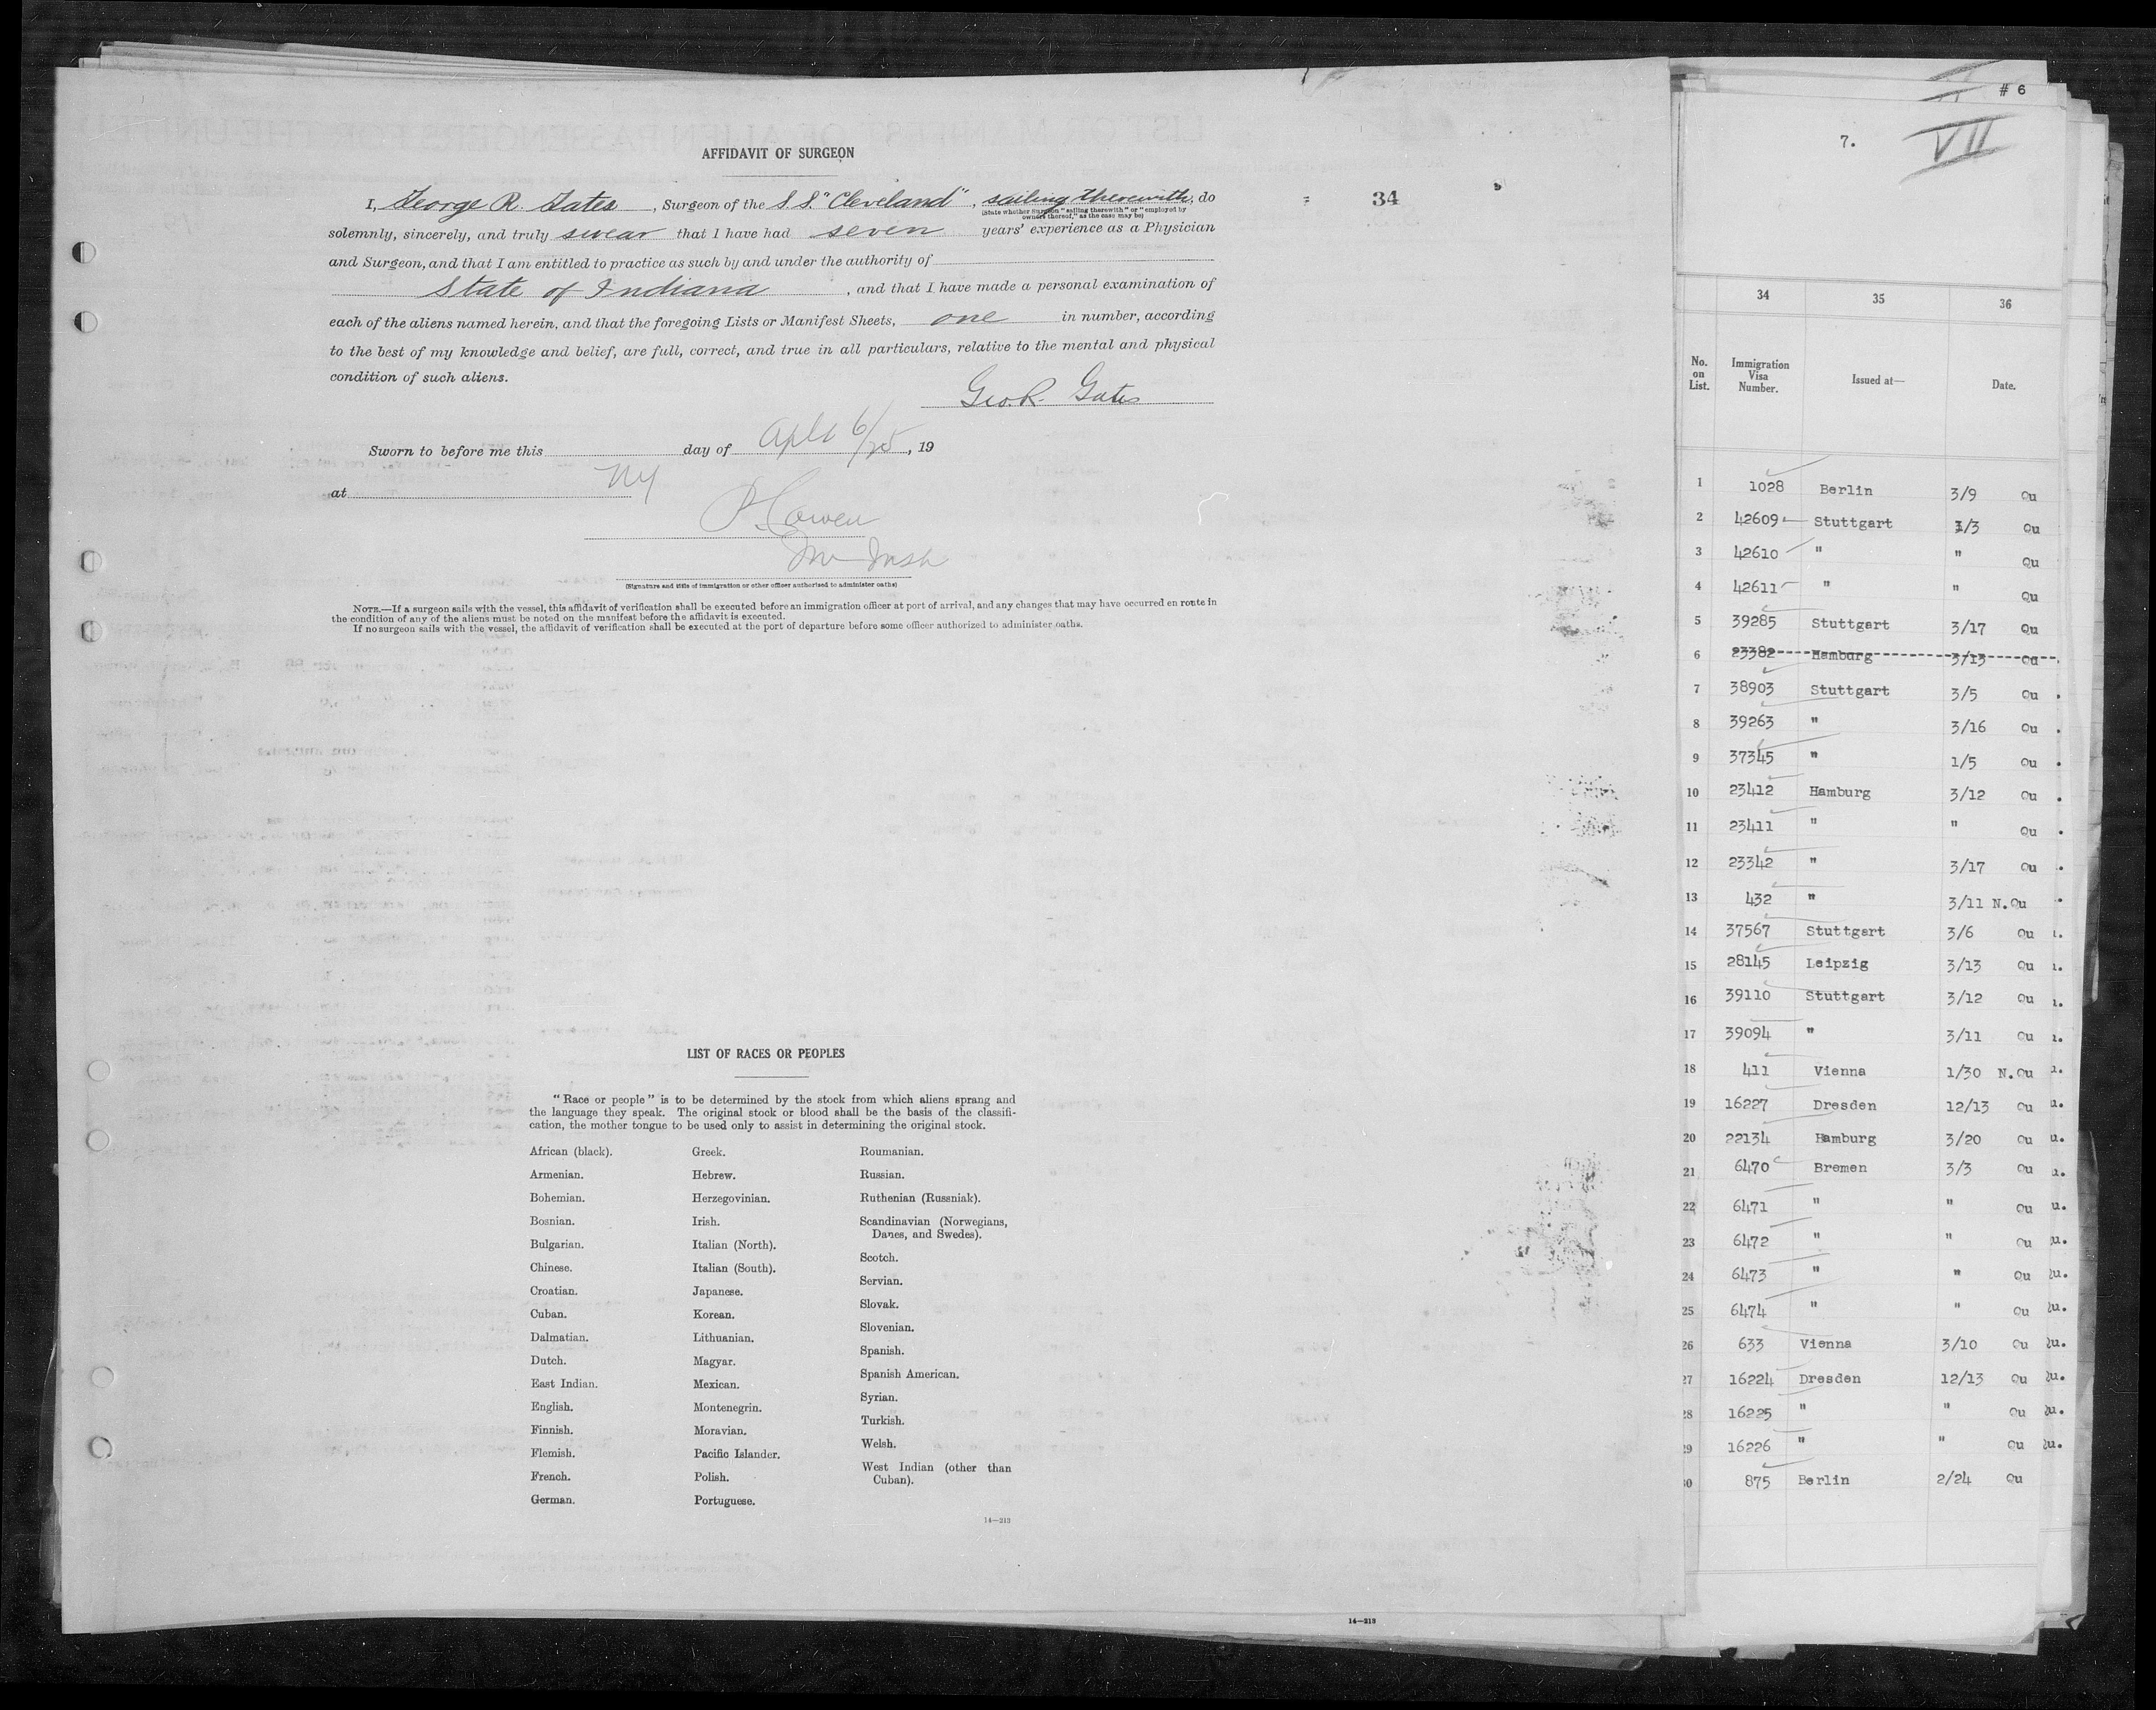 AFFIDAVIT OF SURGEON
I, George R. Gates, Surgeon of the S.S. "Cleveland", sailing therewith, do
(State whether Surgeon "sailing therewith" or "employed by
owners thereof," as the case may be)
solemnly, sincerely, and truly swear that I have had seven years' experience as a Physician
and Surgeon, and that I am entitled to practice as such by and under the authority of
State of Indiana, and that I have made a personal examination of
each of the aliens named herein, and that the foregoing Lists or Manifest Sheets, one in number, according
to the best of my knowledge and belief, are full, correct, and true in all particulars, relative to the mental and physical
condition of such aliens.
Geo. R. Gates
Sworn to before me this day of Apl 6/25, 19
at NY
P. Cowen
(Signature and title of immigration or other officer authorized to administer oaths)
NOTE.—If a surgeon sails with the vessel, this affidavit of verification shall be executed before an immigration officer at port of arrival, and any changes that may have occurred en route in
the condition of any of the aliens must be noted on the manifest before the affidavit is executed.
If no surgeon sails with the vessel, the affidavit of verification shall be executed at the port of departure before some officer authorized to administer oaths.
34
LIST OF RACES OR PEOPLES
"Race or people" is to be determined by the stock from which aliens sprang and
the language they speak. The original stock or blood shall be the basis of the classifi-
cation, the mother tongue to be used only to assist in determining the original stock.
African (black).
Armenian.
Bohemian.
Bosnian.
Bulgarian.
Chinese.
Croatian.
Cuban.
Dalmatian.
Dutch.
East Indian.
English.
Finnish.
Flemish.
French.
German.
Greek.
Hebrew.
Herzegovinian.
Irish.
Italian (North).
Italian (South).
Japanese.
Korean.
Lithuanian.
Magyar.
Mexican.
Montenegrin.
Moravian.
Pacific Islander.
Polish.
Portuguese.
Roumanian.
Russian.
Ruthenian (Russniak).
Scandinavian (Norwegians,
Danes, and Swedes).
Scotch.
Servian.
Slovak.
Slovenian.
Spanish.
Spanish American.
Syrian.
Turkish.
Welsh.
West Indian (other than
Cuban).
14—213
14—213
# 6
7. VII
34 35 36
No. on List. Immigration Visa Number. Issued at— Date.
1 1028 Berlin 3/9 Qu
2 42609 Stuttgart 3/3 Qu
3 42610 " " Qu
4 42611 " " Qu
5 39285 Stuttgart 3/17 Qu
6 23382 Hamburg 3/13 Qu
7 38903 Stuttgart 3/5 Qu
8 39263 " 3/16 Qu
9 37345 " 1/5 Qu
10 23412 Hamburg 3/12 Qu
11 23411 " " Qu
12 23342 " 3/17 Qu
13 432 " 3/11 N.Qu
14 37567 Stuttgart 3/6 Qu
15 28145 Leipzig 3/13 Qu
16 39110 Stuttgart 3/12 Qu
17 39094 " 3/11 Qu
18 411 Vienna 1/30 N.Qu
19 16227 Dresden 12/13 Qu
20 22134 Hamburg 3/20 Qu
21 6470 Bremen 3/3 Qu
22 6471 " " Qu
23 6472 " " Qu
24 6473 " " Qu
25 6474 " " Qu
26 633 Vienna 3/10 Qu
27 16224 Dresden 12/13 Qu
28 16225 " " Qu
29 16226 " " Qu
30 875 Berlin 2/24 Qu